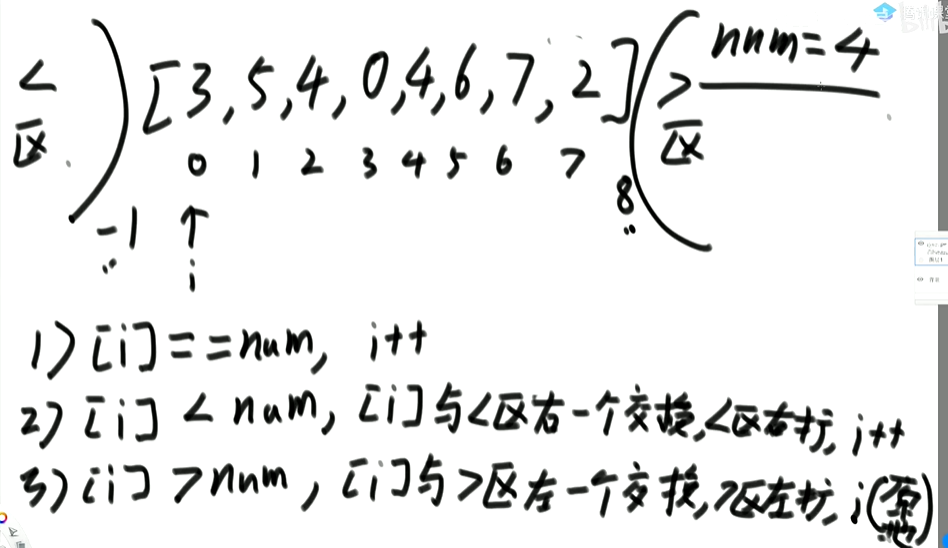 < 区 ) [3, 5, 4, 0, 4, 6, 7, 2] ( > 区 num = 4
0 1 2 3 4 5 6 7
-1 ↑ 8
i
1) [i] == num, i++
2) [i] < num, [i]与<区右一个交换, <区右扩, i++
3) [i] > num, [i]与>区左一个交换, >区左扩, i(原地)